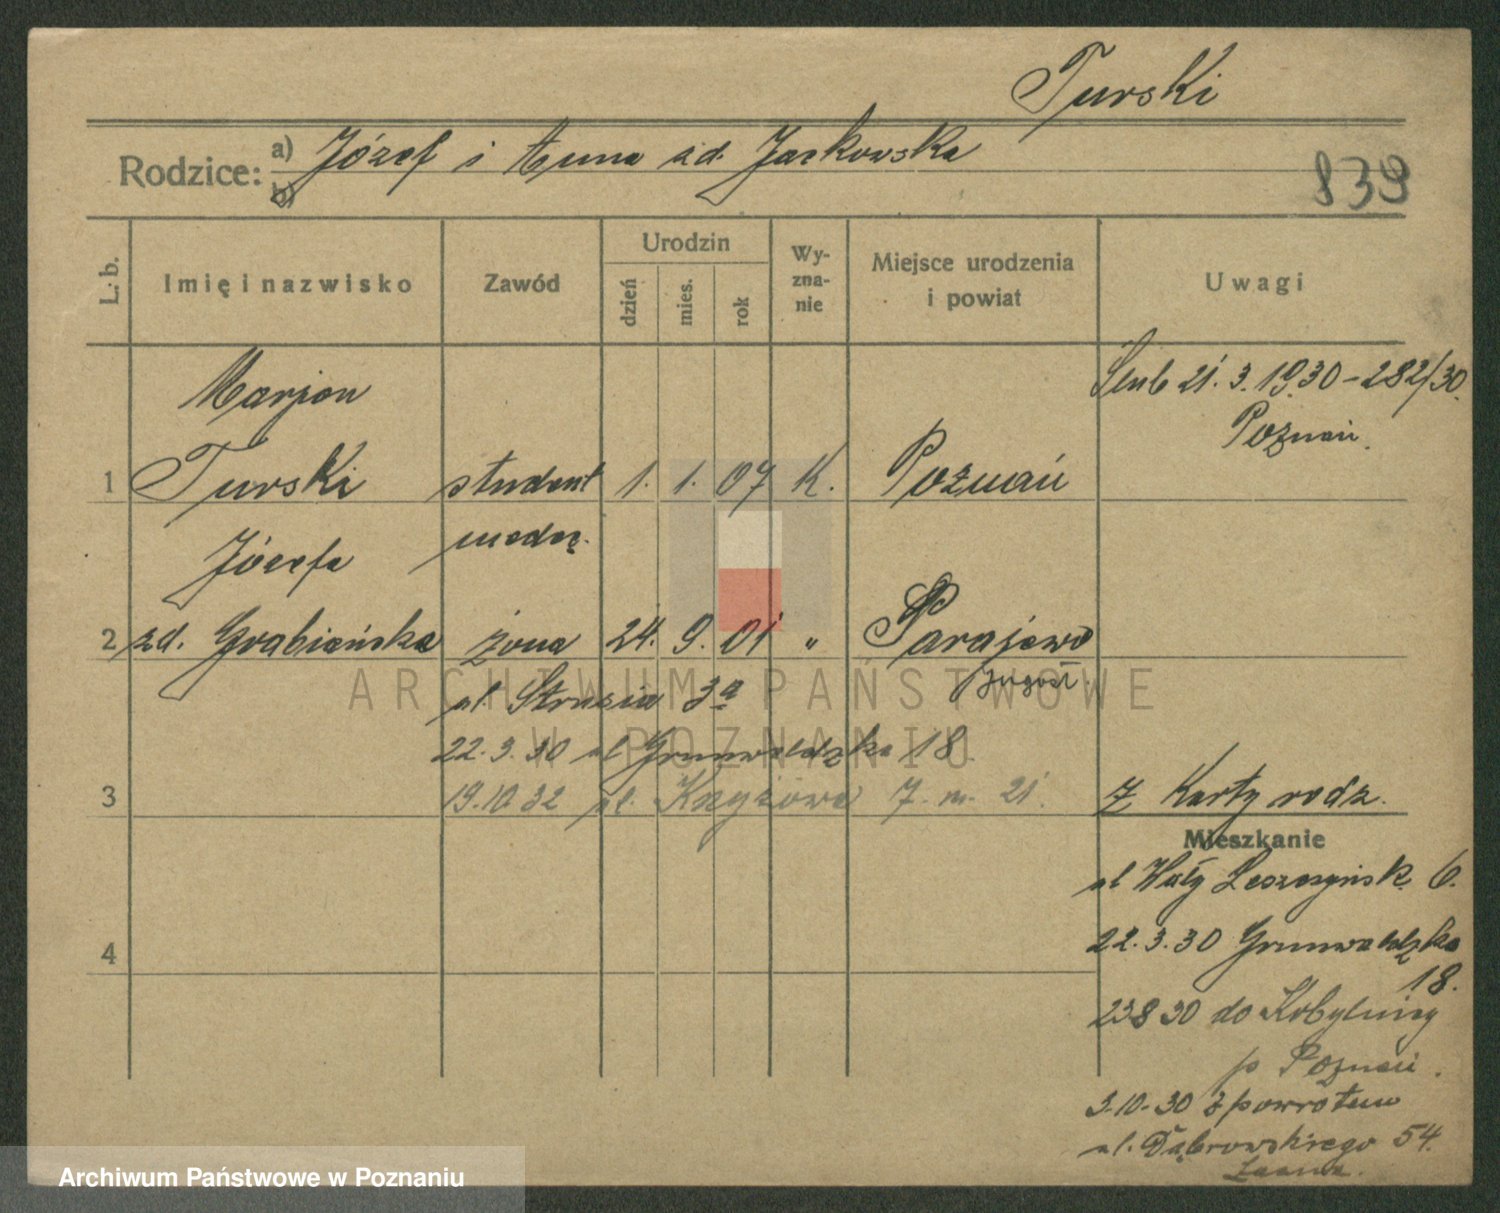 Turski
Rodzice: a) Józef i Anna zd. Jackowska
b)
839
L. b. Imię i nazwisko Zawód Urodzin dzień mies. rok Wyznanie Miejsce urodzenia i powiat Uwagi
Marjan
Ślub 21.3.1930 - 282/30.
Poznań.
1 Turski student 1. 1. 07 K. Poznań
Józefa
2 zd. Grabiańska żona 24. 9. 01 " Sarajewo
Jugosł.
ul. Strusia 3a
22.3.30 ul Grunwaldzka 18
3 19.10.32 ul. Krzyżowa 7 m. 21. Z Karty rodz.
Mieszkanie
ul Wały Leszczyńsk. 6.
4 22.3.30 Grunwaldzka
18.
23 8 30 do Kobylnicy
p Poznań.
3.10.30 z powrotem
ul. Dąbrowskiego 54.
ARCHIWUM PAŃSTWOWE
W POZNANIU
Archiwum Państwowe w Poznaniu